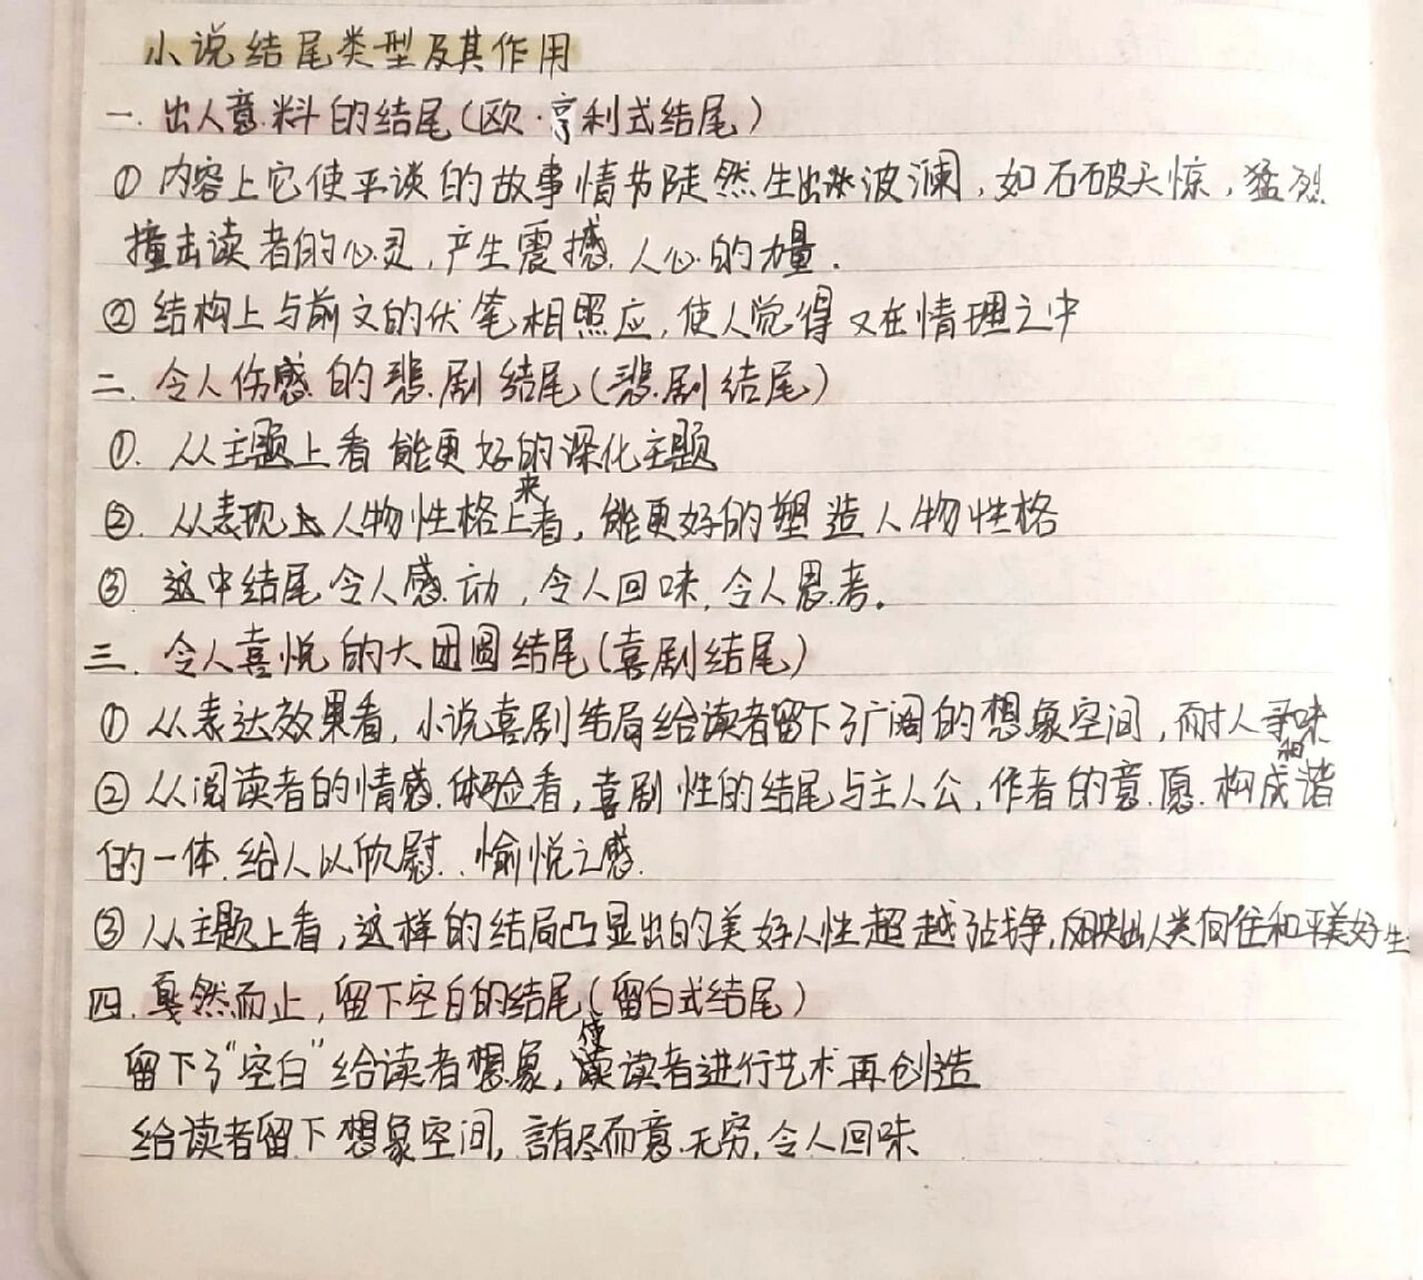 小说结尾类型及其作用
一.出人意料的结尾(欧·亨利式结尾)
①内容上它使平淡的故事情节陡然生出波澜,如石破天惊,猛烈
撞击读者的心灵,产生震撼人心的力量.
②结构上与前文的伏笔相照应,使人觉得又在情理之中
二.令人伤感的悲剧结尾(悲剧结尾)
①.从主题上看能更好的深化主题
②.从表现人物性格上来看,能更好的塑造人物性格
③ 这中结尾令人感动,令人回味,令人思考。
三.令人喜悦的大团圆结尾(喜剧结尾)
①从表达效果看,小说喜剧结局给读者留下了广阔的想象空间,耐人寻味
②从阅读者的情感体验看,喜剧性的结尾与主人公,作者的意愿构成和谐
的一体.给人以欣慰.愉悦之感.
③从主题上看,这样的结局凸显出的美好人性超越战争,反映出人类向往和平美好生
四.戛然而止,留下空白的结尾(留白式结尾)
留下了“空白”给读者想象,使读者进行艺术再创造
给读者留下想象空间,言有尽而意无穷,令人回味